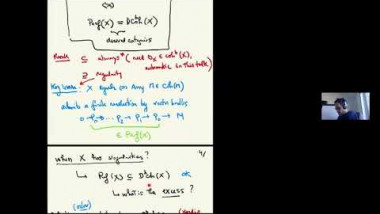 Perf(X) = DCoh(X)
derived categories
Recall ⊆ always* (need O_X ∈ coh(X),
automatic in this talk)
⊇ regularity
X regular ⇔ Any M ∈ Coh(X)
admits a finite resolution by vector bundles
0 → P_n → ... P_2 → P_1 → P_0 → M
∈ Perf(X)
when X has singularities?
4/
Perf(X) ⊊ DCoh(X) ok
↳ what is the excess?